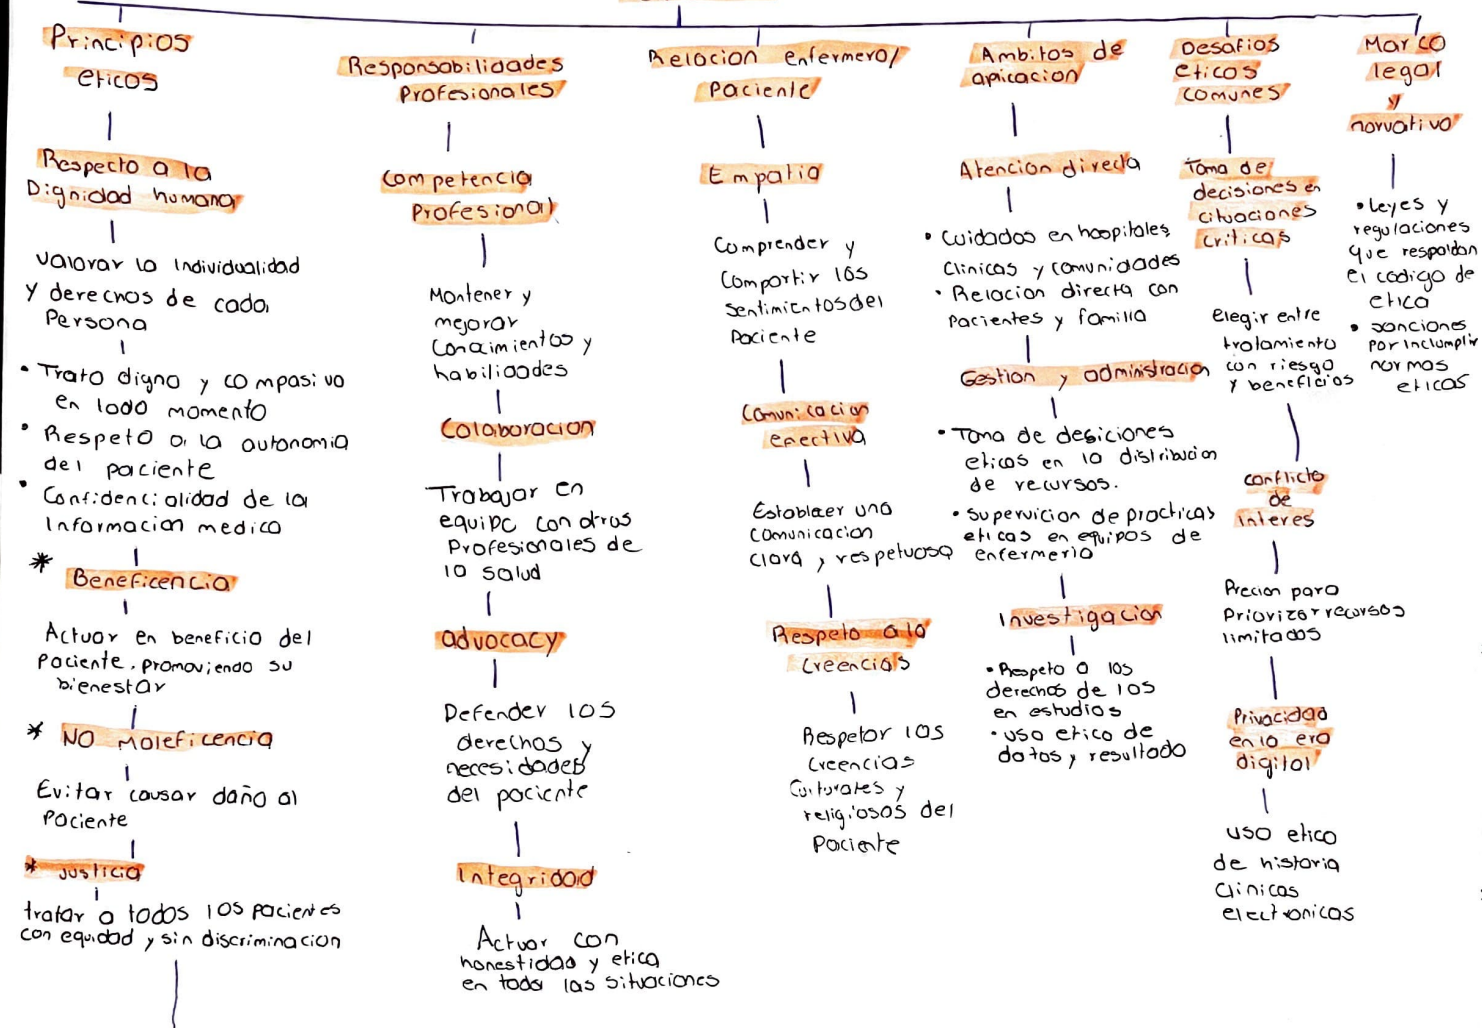 Principios
eticos
Respecto a la
Dignidad humana
valorar la individualidad
y derechos de cada
Persona
• Trato digno y compasivo
en todo momento
• Respeto a la autonomia
del paciente
• Confidencialidad de la
Informacion medica
* Beneficencia
Actuar en beneficio del
paciente, promoviendo su
bienestar
* NO Maleficencia
Evitar causar daño al
Paciente
* Justicia
tratar a todos los pacientes
con equidad y sin discriminacion
Responsabilidades
Profesionales
Competencia
Profesional
Mantener y
mejorar
Conocimientos y
habilidades
Colaboracion
Trabajar en
equipo con otros
Profesionales de
la salud
advocacy
Defender los
derechos y
necesidades
del paciente
Integridad
Actuar con
honestidad y etica
en todas las situaciones
Relacion enfermero/
Paciente
Empatia
Comprender y
Compartir los
sentimientos del
Paciente
Comunicacion
efectiva
Establecer una
comunicacion
clara y respetuosa
Respeto a la
Creencias
Respetar las
Creencias
Culturales y
religiosos del
Paciente
Ambitos de
apicacion
Atencion directa
• Cuidados en hospitales,
Clinicas y comunidades
• Relacion directa con
Pacientes y familia
Gestion y administracion
• Toma de desiciones
eticas en la distribucion
de recursos.
• supervicion de practicas
eticas en equipos de
enfermeria
Investigacion
• Respeto a los
derechos de los
en estudios
• uso etico de
datos y resultado
Desafios
eticos
comunes
Toma de
decisiones en
cituaciones
criticas
elegir entre
tratamiento
con riesgo
y beneficios
conflicto
de
interes
Precion para
Priorizar recursos
limitados
Privacidad
en la era
digital
uso etico
de historia
Clinicas
electronicas
Marco
legal
y
norvativo
• Leyes y
regulaciones
que respaldan
el codigo de
etica
• sanciones
por inclumplir
normas
eticas